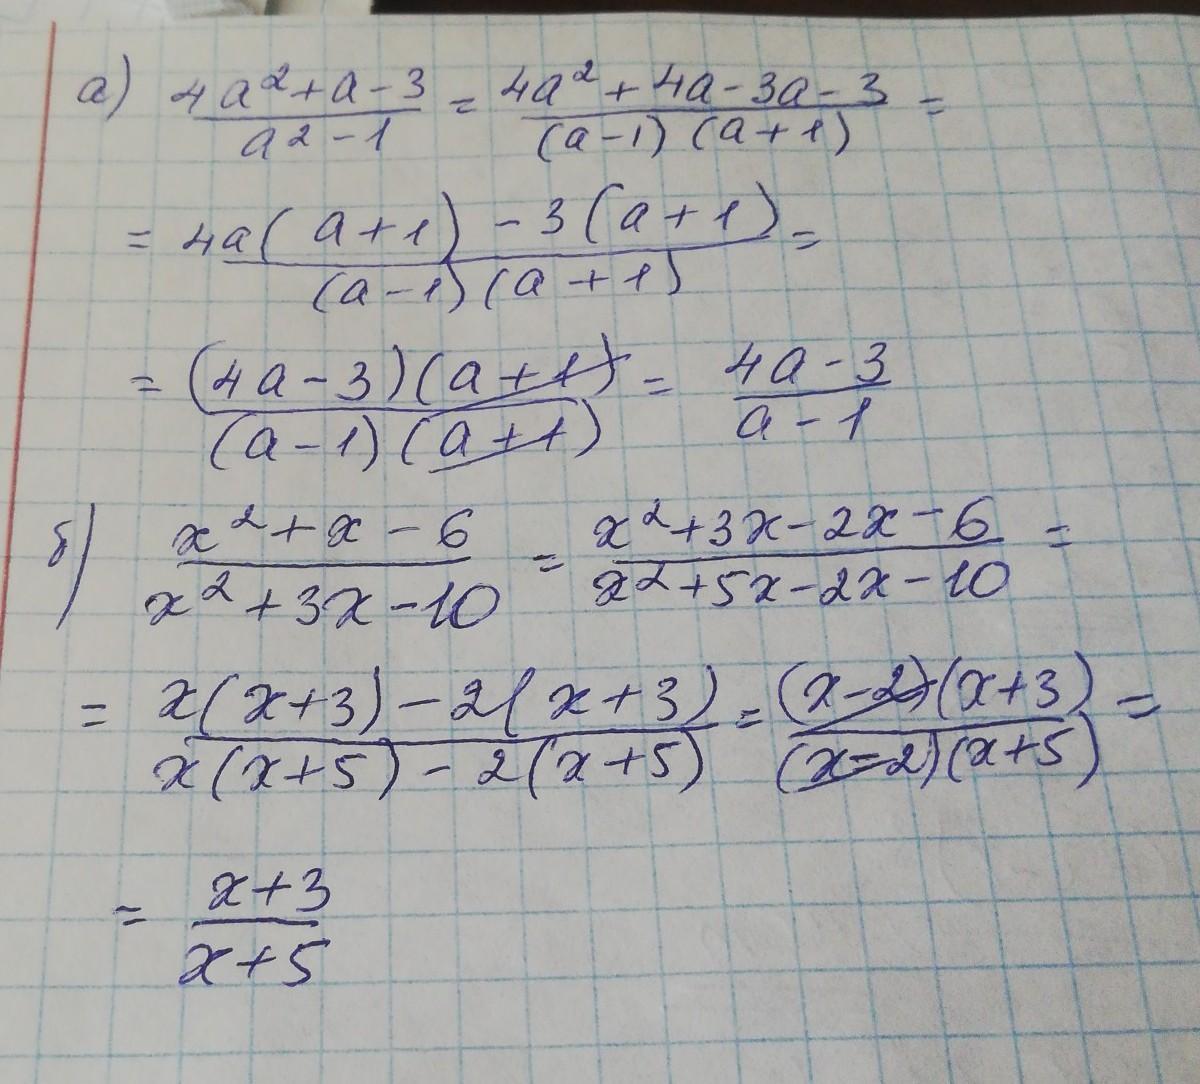 а) 4a²+a-3 / a²-1 = 4a²+4a-3a-3 / (a-1)(a+1) =
= 4a(a+1)-3(a+1) / (a-1)(a+1) =
= (4a-3)(a+1) / (a-1)(a+1) = 4a-3 / a-1
б) x²+x-6 / x²+3x-10 = x²+3x-2x-6 / x²+5x-2x-10 =
= x(x+3)-2(x+3) / x(x+5)-2(x+5) = (x-2)(x+3) / (x-2)(x+5) =
= x+3 / x+5